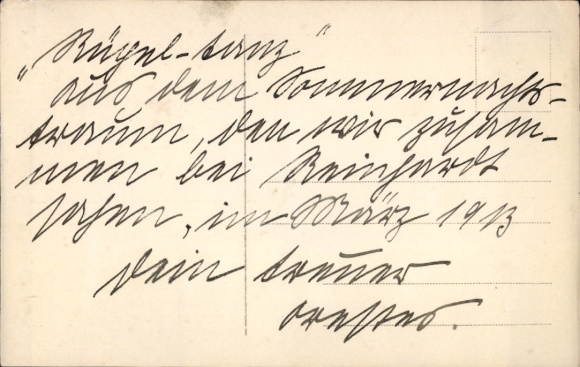 "Rüpel-tanz"
aus dem Sommernachts-
traum, den wir zusam-
men bei Reinhardt
sahen, im März 1913
Dein treuer
Orestes.